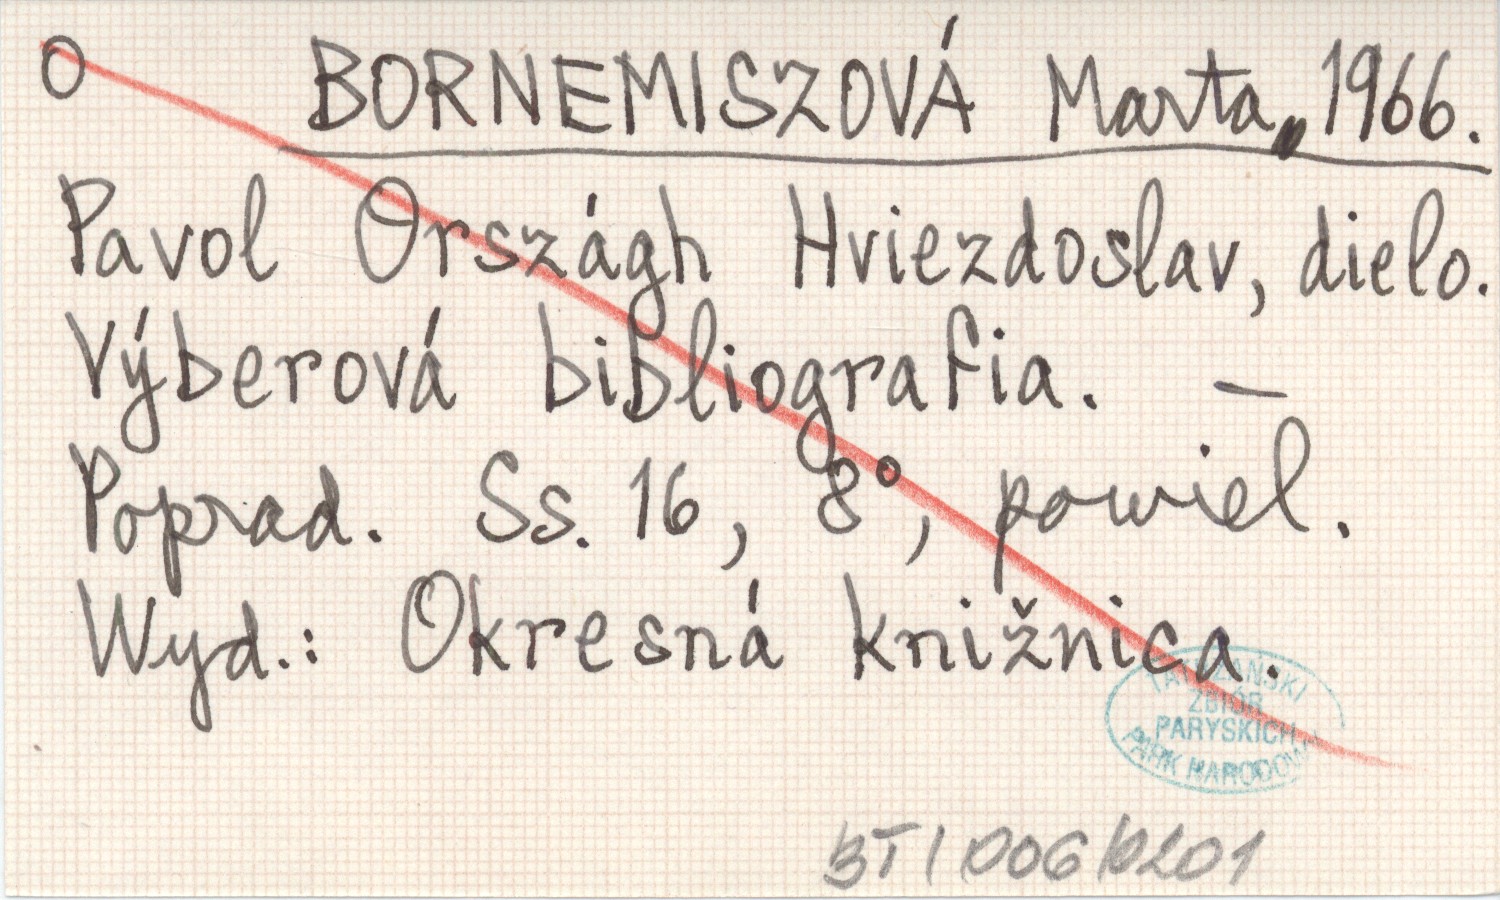 O BORNEMISZOVÁ Marta, 1966.
Pavol Országh Hviezdoslav, dielo.
Výberová bibliografia. —
Poprad. Ss. 16, 8°, powiel.
Wyd.: Okresná knižnica.
TATRZAŃSKI
ZBIÓR
PARYSKICH
PARK NARODOWY
BT/006/0201